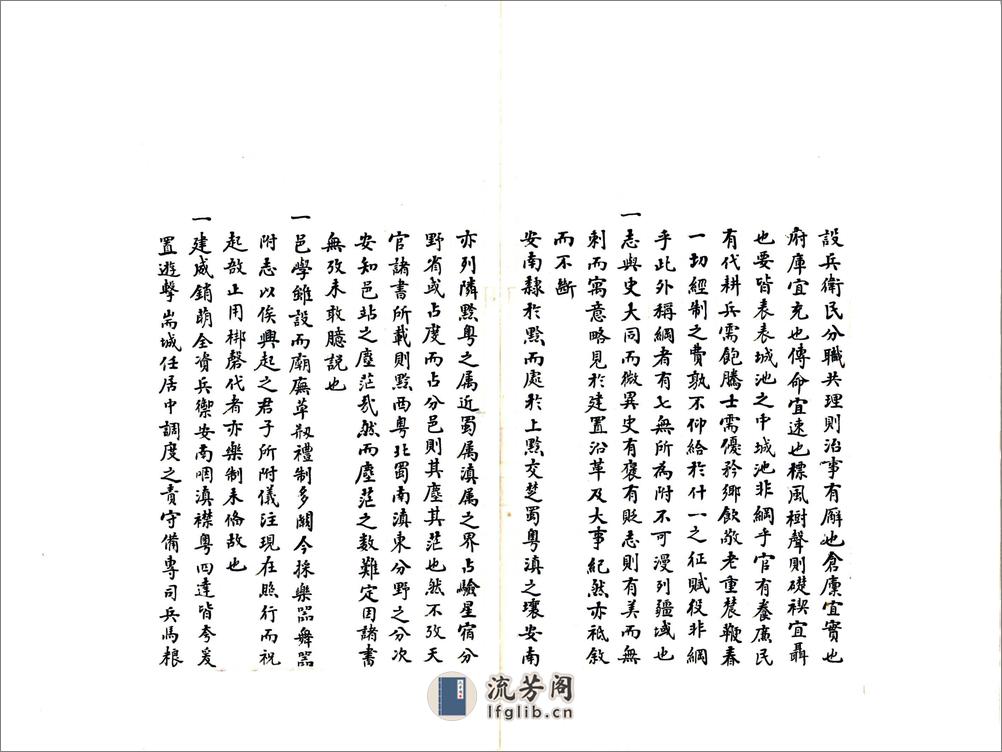 設兵衛民分職共理則治事有廨也倉廩宜實也
府庫宜充也傳命宜速也標風樹聲則礎禊宜聶
也要皆表表城池之中城池非綱乎官有養廉民
有代耕兵需飽騰士需優矜鄉飲敬老重農鞭春
一切經制之費孰不仰給於什一之征賦役非綱
乎此外稱綱者有七無所為附不可漫列疆域也
一志與史大同而微異史有褒有貶志則有美而無
刺而寓意略見於建置沿革及大事紀然亦祇敘
而不斷
安南隸於黔而處於上黔交楚蜀粵滇之壤安南
亦列隣黔粵之属近蜀属滇属之界占驗星宿分
野省或占度而占分邑則其塵其茫也然不攷天
官諸書所載則黔西粵北蜀南滇東分野之分次
安知邑站之塵茫哉然而塵茫之数難定因諸書
無攷未敢臆説也
一邑學雖設而廟廡草剏禮制多闕今採樂噐舞噐
附志以俟興起之君子所附儀注現在照行而祝
起敔止用梆磬代者亦樂制未備故也
一建威銷萌全資兵禦安南咽滇襟粵四達皆冬爰
置逰擊耑城任居中調度之責守備專司兵馬根
流芳阁
lfglib.cn